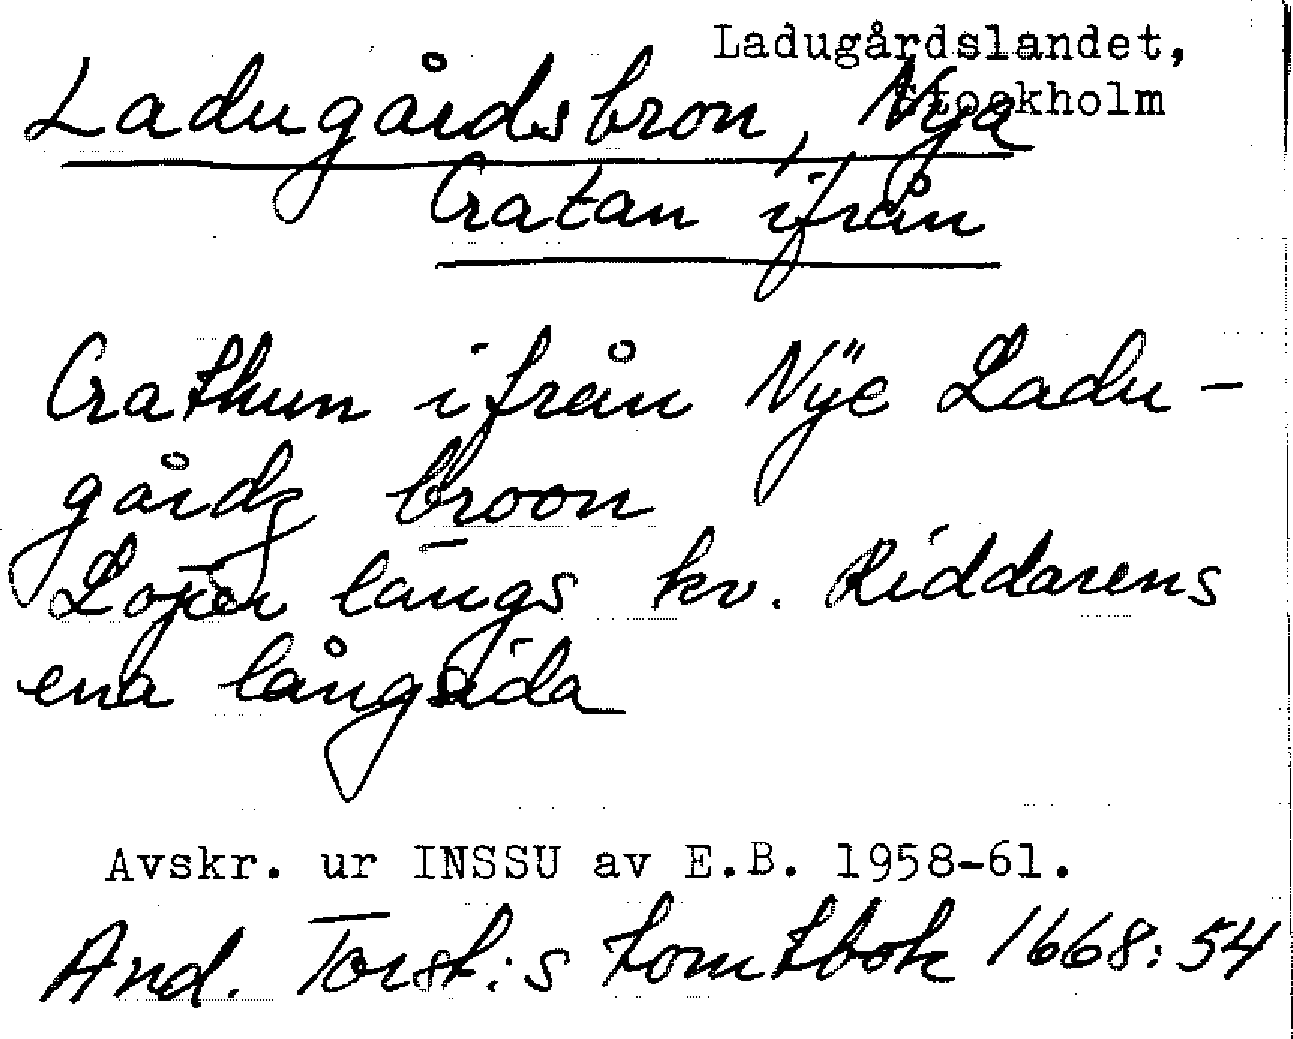 Ladugårdslandet,
Stockholm
Ladugårdsbron, Nya
Gatan ifrån
Gathun ifrån Nÿe Ladu-
gårdz broon
Löper längs kv. Riddarens
ena långsida
Avskr. ur INSSU av E.B. 1958-61.
And. Torst:s tomtbok 1668:54